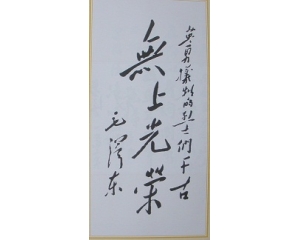 英勇牺牲的烈士们千古
無上光荣
毛泽东